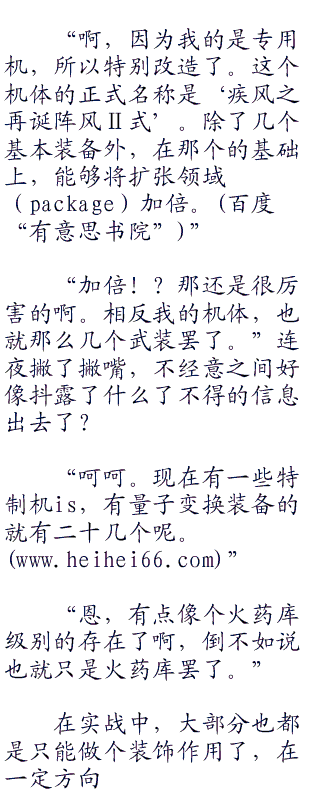 “啊，因为我的是专用
机，所以特别改造了。这个
机体的正式名称是‘疾风之
再诞阵风Ⅱ式’。除了几个
基本装备外，在那个的基础
上，能够将扩张领域
（package）加倍。(百度
“有意思书院”)”
“加倍！？那还是很厉
害的啊。相反我的机体，也
就那么几个武装罢了。”连
夜撇了撇嘴，不经意之间好
像抖露了什么了不得的信息
出去了？
“呵呵。现在有一些特
制机is，有量子变换装备的
就有二十几个呢。
(www.heihei66.com)”
“恩，有点像个火药库
级别的存在了啊，倒不如说
也就只是火药库罢了。”
在实战中，大部分也都
是只能做个装饰作用了，在
一定方向